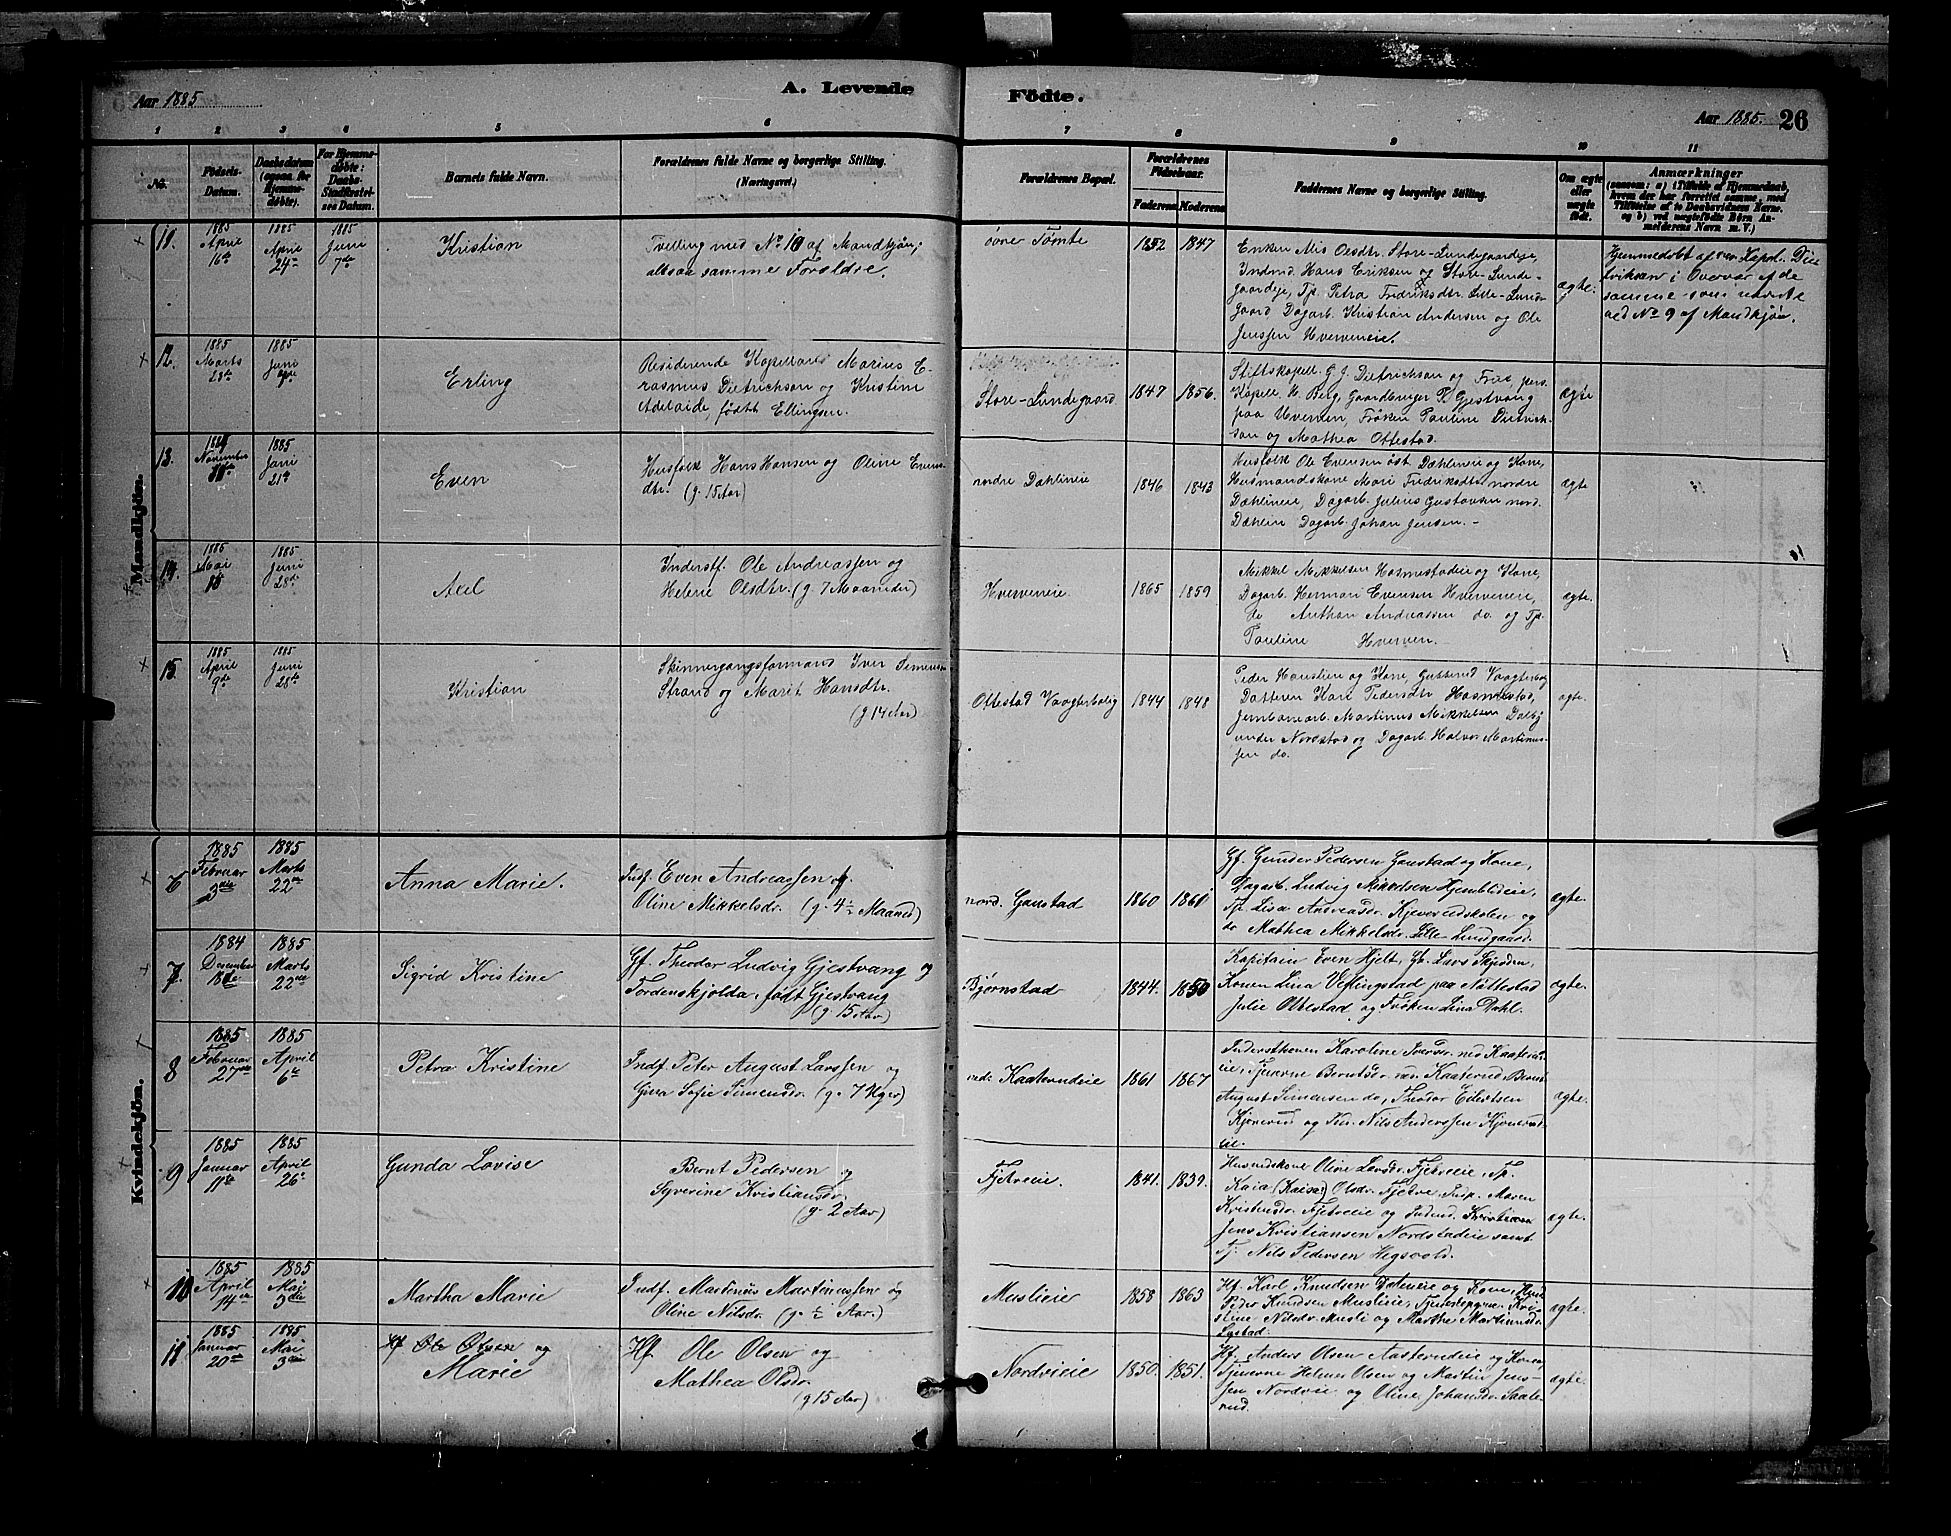 Aar 1885
A. Levende
Födte.
Aar 1885.
26
1 2 3 4 5 6 7 8 9 10 11
No.
Födsels-
Datum.
Daabsdatum
(ogsaa for
Hjemme-
døbte).
For Hjemme-
døbte:
Daabs-
Stadfæstel-
ses Datum.
Barnets fulde Navn.
Forældrenes fulde Navne og borgerlige Stilling.
(Næringsvei.)
Forældrenes Bopæl.
Forældrenes
Födselsaar.
Faderens
Moderens
Faddernes Navne og borgerlige Stilling.
Om ægte
eller
uægte
født.
Anmærkninger
(saasom: a) i Tilfælde af Hjemmedaab,
hvem der har forrettet samme, med
Tilføielse af to Daabsvidners Navne.
og b) ved uægtefødte Börn An-
melderens Navn m. V.)
Mandkjön.
11.
1885
April
16de
1885
April
24de
1885
Juni
7de
Kristian
Tvelling med No 10 af Mandkjön;
altsaa samme Forældre.
övre Tömte
1852
1847
Enken Mis Olsdtr. Store-Lundegaardeje,
Inderst. Hans Eriksen og Store-Lunde-
gaardeje, Tp. Petra Fredriksdtr. Lille-Lund-
gaard Dagarb. Kristian Andersen og Ole
Jenssen Hverveneie.
ægte.
Hjemmedöbt af res. Kapel. Die-
trikson i Overvær af de
samme som nævnte
ved No 9 af Mandkjön.
12.
1885
Marts
28de
1885
Juni
7de
Erling
Residerende Kapellan Marius E-
rasmus Dietrichson og Kristine
Adelaide, födt Ellingsen.
Store-Lundegaard
1847
1856.
Stiftskapell. G. J. Dietrichson og Frue, pers.
Kapell. M. Berg, Gaardbruger P. Gjestvang
paa Hverven, Fröken Pauline Dietrich-
son og Mathea Ottestad.
ægte
13.
1884
November
11te
1885
Juni
21de
Even
Husfolk Hans Hansen og Oline Evens-
dtr. (g. 15 Aar)
nordre Dæhlineie
1846
1843
Husfolk Ole Evensen öst. Dæhlineie og Kone,
Husmandskone Mari Fredriksdtr nordre
Dæhlineie, Dagarb. Julius Gustavsen nord.
Dæhlin Dagarb. Johan Jensen. -
ægte
14.
1885
Mai
15
1885
Juni
28de
Axel
Inderstf. Ole Andreassen og
Helene Olsdtr. (g. 7 Maaneder)
Hverveneie.
1865
1859
Mikkel Mikkelsen Hosmestadeie og Kone,
Dagarb. Herman Evensen Hverveneie,
do Anthon Andreassen do. og Tp.
Pauline Hverven. -
ægte.
15.
1885
April
9de
1885
Juni
28de
Kristian
Skinnergangsformand Iver Simensen
Strand og Marit Hansdtr.
(g. 14 Aar)
Ottestad Vaagterbolig
1844
1848
Peder Haustien og Kone, Gutterud Vaagterbolig
Datteren Kari Pedersdtr Hosmestad,
Jernbanearb. Martinus Mikkelsen Dalby
under Nordstad og Dagarb. Halvor Martinus-
sen do.
ægte.
Kvindekjön.
6
1885
Februar
3die
1885
Marts
22de
Anna Marie.
Indf. Even Andreassen og
Oline Mikkelsdr. (g. 4½ Maaned)
nord. Gaustad
1860
1861
Gf. Gunder Pedersen Gaustad og Kone,
Dagarb. Ludvig Mikkelsen Hjemblideie,
Tp. Lisa Andreasdr. Kjeverudskolen og
do Mathea Mikkelsdr. Lille Lundgaard.
ægte.
7.
1884
Desember
18de
1885
Marts
22de
Sigrid Kristine
Gf. Theodor Ludvig Gjestvang og
Tordenskjolda, født Gjestvang
(g. 15 Aar)
Bjørnstad
1844.
1850
Kapitain Even Hjelt, Gb. Lars Skjoden,
Konen Lina Veflingstad paa Nøttestad
Julie Ottestad og Frøken Lina Dahl.
ægte.
8
1885
Februar
27de
1885
April
6te
Petra Kristine
Indf. Peter August Larsen og
Gina Sofie Simensdr. (g. 7 Uger)
ned: Kaaterudeie
1861
1867
Inderstkonen Karoline Iversdr. ned Kaaterud-
eie, Tjenerne Berntsdr. ned. Kaaterud, Bernt
August Simensen do, Theodor Eilertsen
Kjonerud og Inn. Nils Anderssen Kjonerud-
eie.
ægte.
9
1885
Januar
11te
1885
April
26de
Gunda Lovise
Bernt Pedersen og
Syverine Kristiansdr.
(g. 2 Aar)
Fjetreie.
1841.
1839.
Husmdskone Oline Larsdr. Fjetreie, Tp.
Kaia (Kaisa) Olsdr. Fjetre. Insp. Maren
Kristensdr. Fjetreie og Inderst. Kristian
Jens Kristiansen Nordstadeie samt
Tj. Nils Pedersen Hegsvold.
ægte.
10
1885
April
14de
1885
Mai
3die
Martha Marie
Indf. Martinus Martinussen og
Oline Nilsdr. (g. ½ Aar.)
Muslieie
1858
1863
Hf. Karl Knudsen Dateneie og Kone,
Peder Knudsen Muslieie, Tjenestepigerne Kri-
stine Nilsdr. Musli og Marthe Martinusdr.
Systad.
ægte.
11
1885
Januar
20de
1885
Mai
3die
Hf Ole Olsen og
Marie
Hf. Ole Olsen og
Mathea Olsdr.
(g 15 Aar)
Nordvieie
1850.
1851.
Hf. Anders Olsen Aasterudeie og Kone,
Tjenerne Helmer Olsen og Martin Jens-
sen Nordvie og Oline Johansdr. Saate-
rud.
ægte.